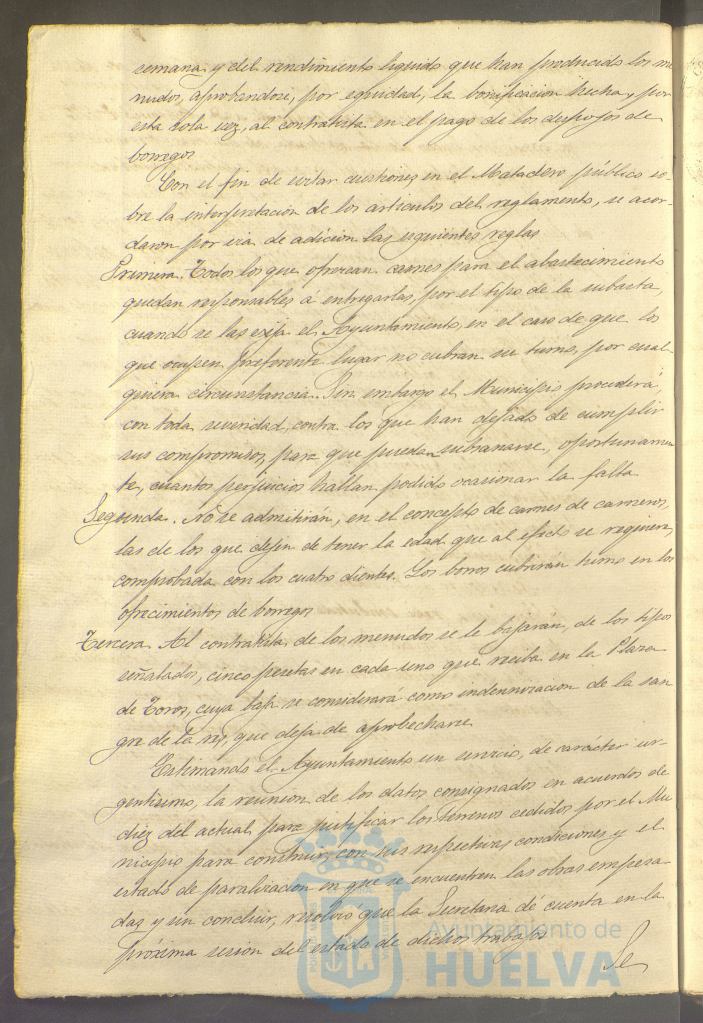 semana y del rendimiento liquido que han producido los me
nudos, aprobendose, por equidad, la bonificacion hecha, por
esta sola vez, al contratista en el pago de los despojos de
borregos
Con el fin de evitar cuestiones en el Matadero público so-
bre la interpretacion de los articulos del reglamento, se acor-
daron por via de adicion las siguientes reglas
Primera. Todos los que ofrezcan carnes para el abastecimiento
quedan responsables á entregarlas, por el tipo de la subasta,
cuando se las exija el Ayuntamiento, en el caso de que los
que ocupen preferente lugar no cubran su turno, por cual-
quiera circunstancia. Sin embargo el Municipio procederá,
con toda severidad, contra los que han dejado de cumplir
sus compromisos, para que puedan subsanarse, oportunamen
te, cuantos perjuicios hallan podido ocasionar la falta
Segunda. No se admitirán, en el concepto de carnes de carneros,
las de los que dejen de tener la edad que al efecto se requiere,
comprobada con los cuatro dientes. Los borros cubrirán turno en los
ofrecimientos de borregos
Tercera. Al contratista de los menudos se le bajarán, de los tipos
señalados, cinco pesetas en cada uno que reciba en la Plaza
de Toros, cuya baja se considerará como indemnizacion de la san
gre de la res, que deja de aprobecharse.
Estimando el Ayuntamiento un servicio, de carácter ur-
gentisimo, la reunion de los datos consignados en acuerdos de
diez del actual para justificar los terrenos cedidos por el Mu
nicipio para construir, con sus respectivas condiciones y el
estado de paralizacion en que se encuentren las obras empeza-
das y sin concluir, resolvió que la Secretaria dé cuenta en la
próxima sesion del estado de dichos trabajos
Se
Ayuntamiento de
HUELVA